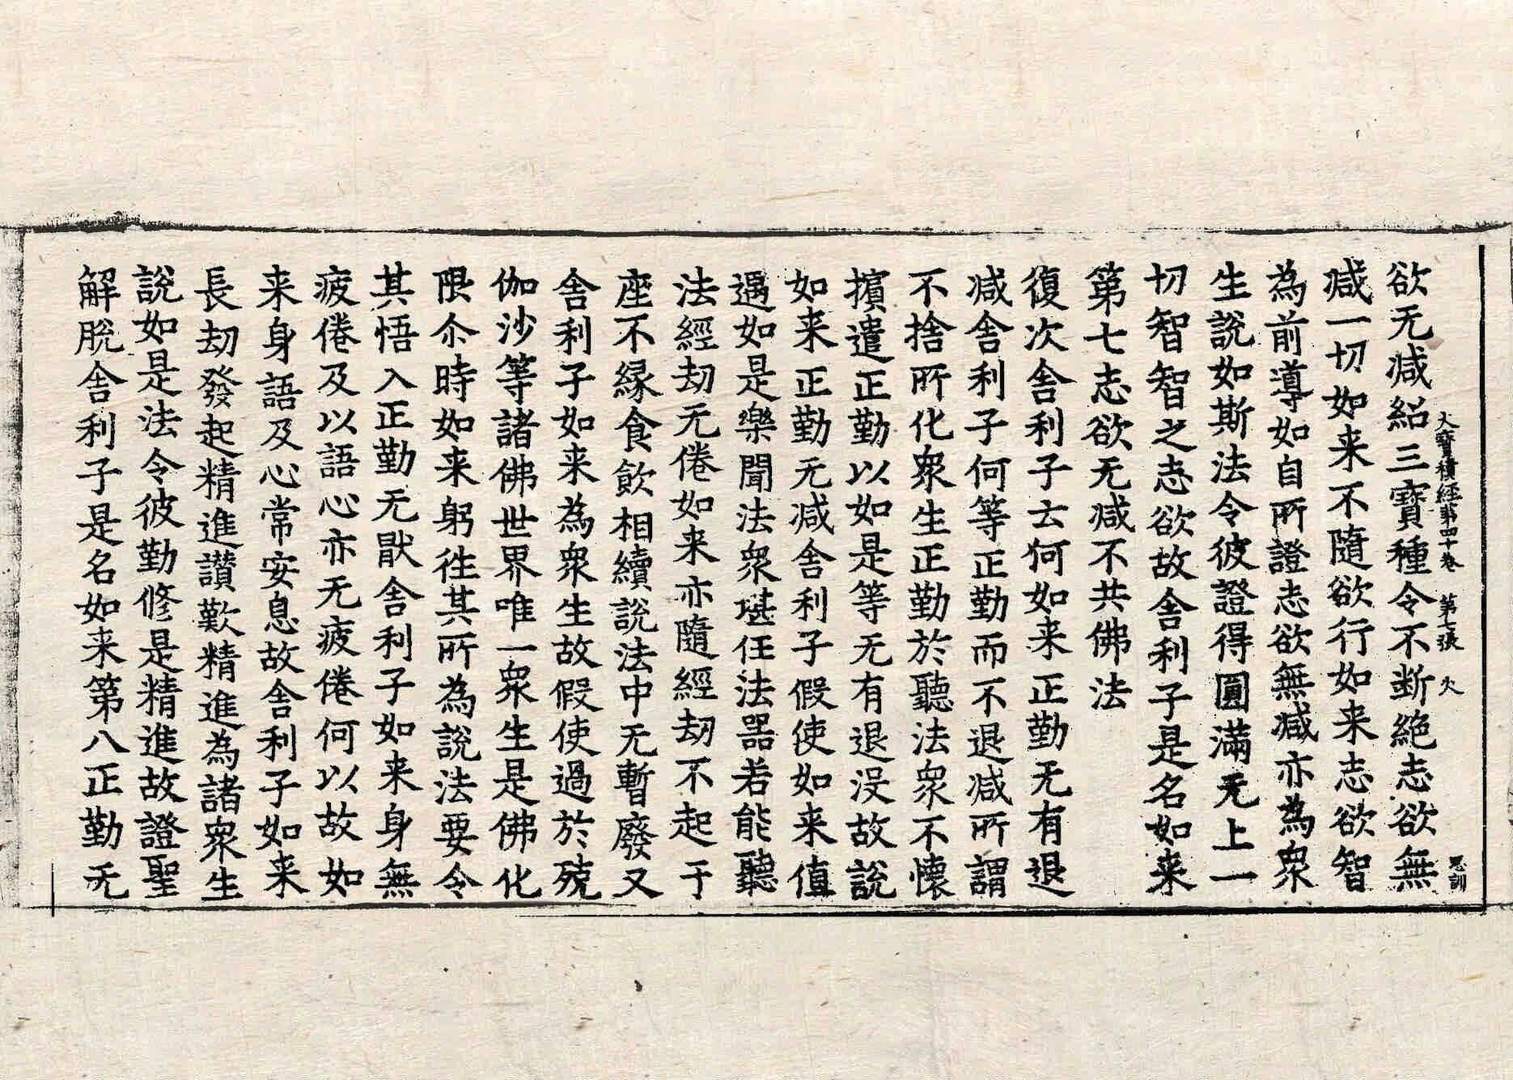 大寶積經第四十卷 第七張 火
思訓
欲无減紹三寶種令不断絶志欲無
減一切如来不隨欲行如来志欲智
為前導如自所證志欲無減亦為衆
生說如斯法令彼證得圓滿无上一
切智智之志欲故舎利子是名如来
第七志欲无減不共佛法
復次舎利子云何如来正勤无有退
減舎利子何等正勤而不退減所謂
不捨所化衆生正勤於聽法衆不懷
擯遣正勤以如是等无有退没故說
如来正勤无減舎利子假使如来值
遇如是樂聞法衆堪任法器若能聽
法經劫无倦如来亦隨經劫不起于
座不緣食飲相續說法中无暫廢又
舎利子如来為衆生故假使過於殑
伽沙等諸佛世界唯一衆生是佛化
限尒時如来躬往其所為說法要令
其悟入正勤无猒舎利子如来身無
疲倦及以語心亦无疲倦何以故如
来身語及心常安息故舎利子如来
長劫發起精進讃歎精進為諸衆生
說如是法令彼勤修是精進故證聖
解脫舎利子是名如来第八正勤无